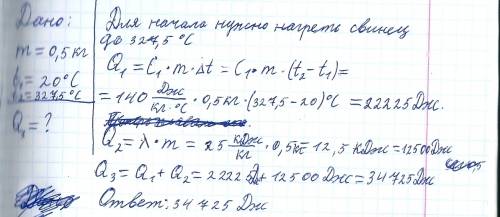 Дано:
m = 0,5 кг
t₁ = 20°C
t₂ = 327,5°C
Q₁ = ?
Для начала нужно нагреть свинец
до 327,5°C
Q₁ = C₁ · m · Δt = C₁ · m · (t₂ - t₁) =
= 140 Дж/кг·°C · 0,5 кг · (327,5 - 20)°C = 22225 Дж.
Q₂ = λ · m = 25 кДж/кг · 0,5 кг = 12,5 кДж = 12500 Дж
Q₃ = Q₁ + Q₂ = 22225 Дж + 12500 Дж = 34725 Дж
Ответ: 34 725 Дж